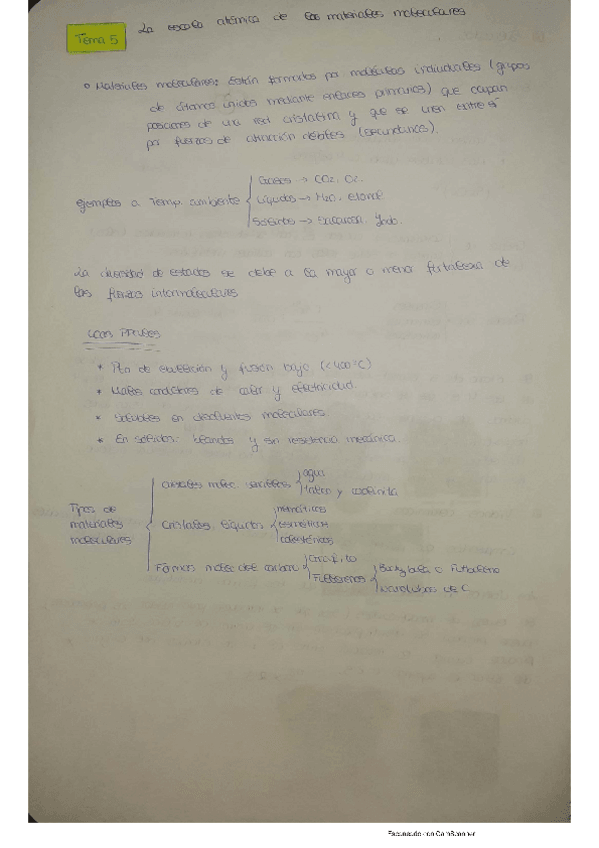 Tema 5
La escala atómica de los materiales moleculares
• Materiales moleculares: Están formados por moléculas individuales (grupos
de átomos unidos mediante enlaces primarios) que ocupan
posiciones de una red cristalina y que se unen entre sí
por fuerzas de atracción débiles (secundarios).
Ejemplos a Temp. ambiente
Gases → CO2, O2.
Líquidos → H2O, etanol
Sólidos → Yodo.
La diversidad de estados se debe a la mayor o menor fortaleza de
las fuerzas intermoleculares
* Pto de ebullición y fusión bajo (<400°C)
* Malos conductores de calor y electricidad.
* Solubles en disolventes moleculares.
* En sólidos: blandos y sin resistencia mecánica.
Tipos de
materiales
moleculares
Cristales molec. sencillos
agua
Cristales líquidos
nemáticos
esmécticos
colestéricos
Formas molec. del carbono
Grafito
Fullerenos
Buckyball o
nanotubos de C.
Escaneado con CamScanner